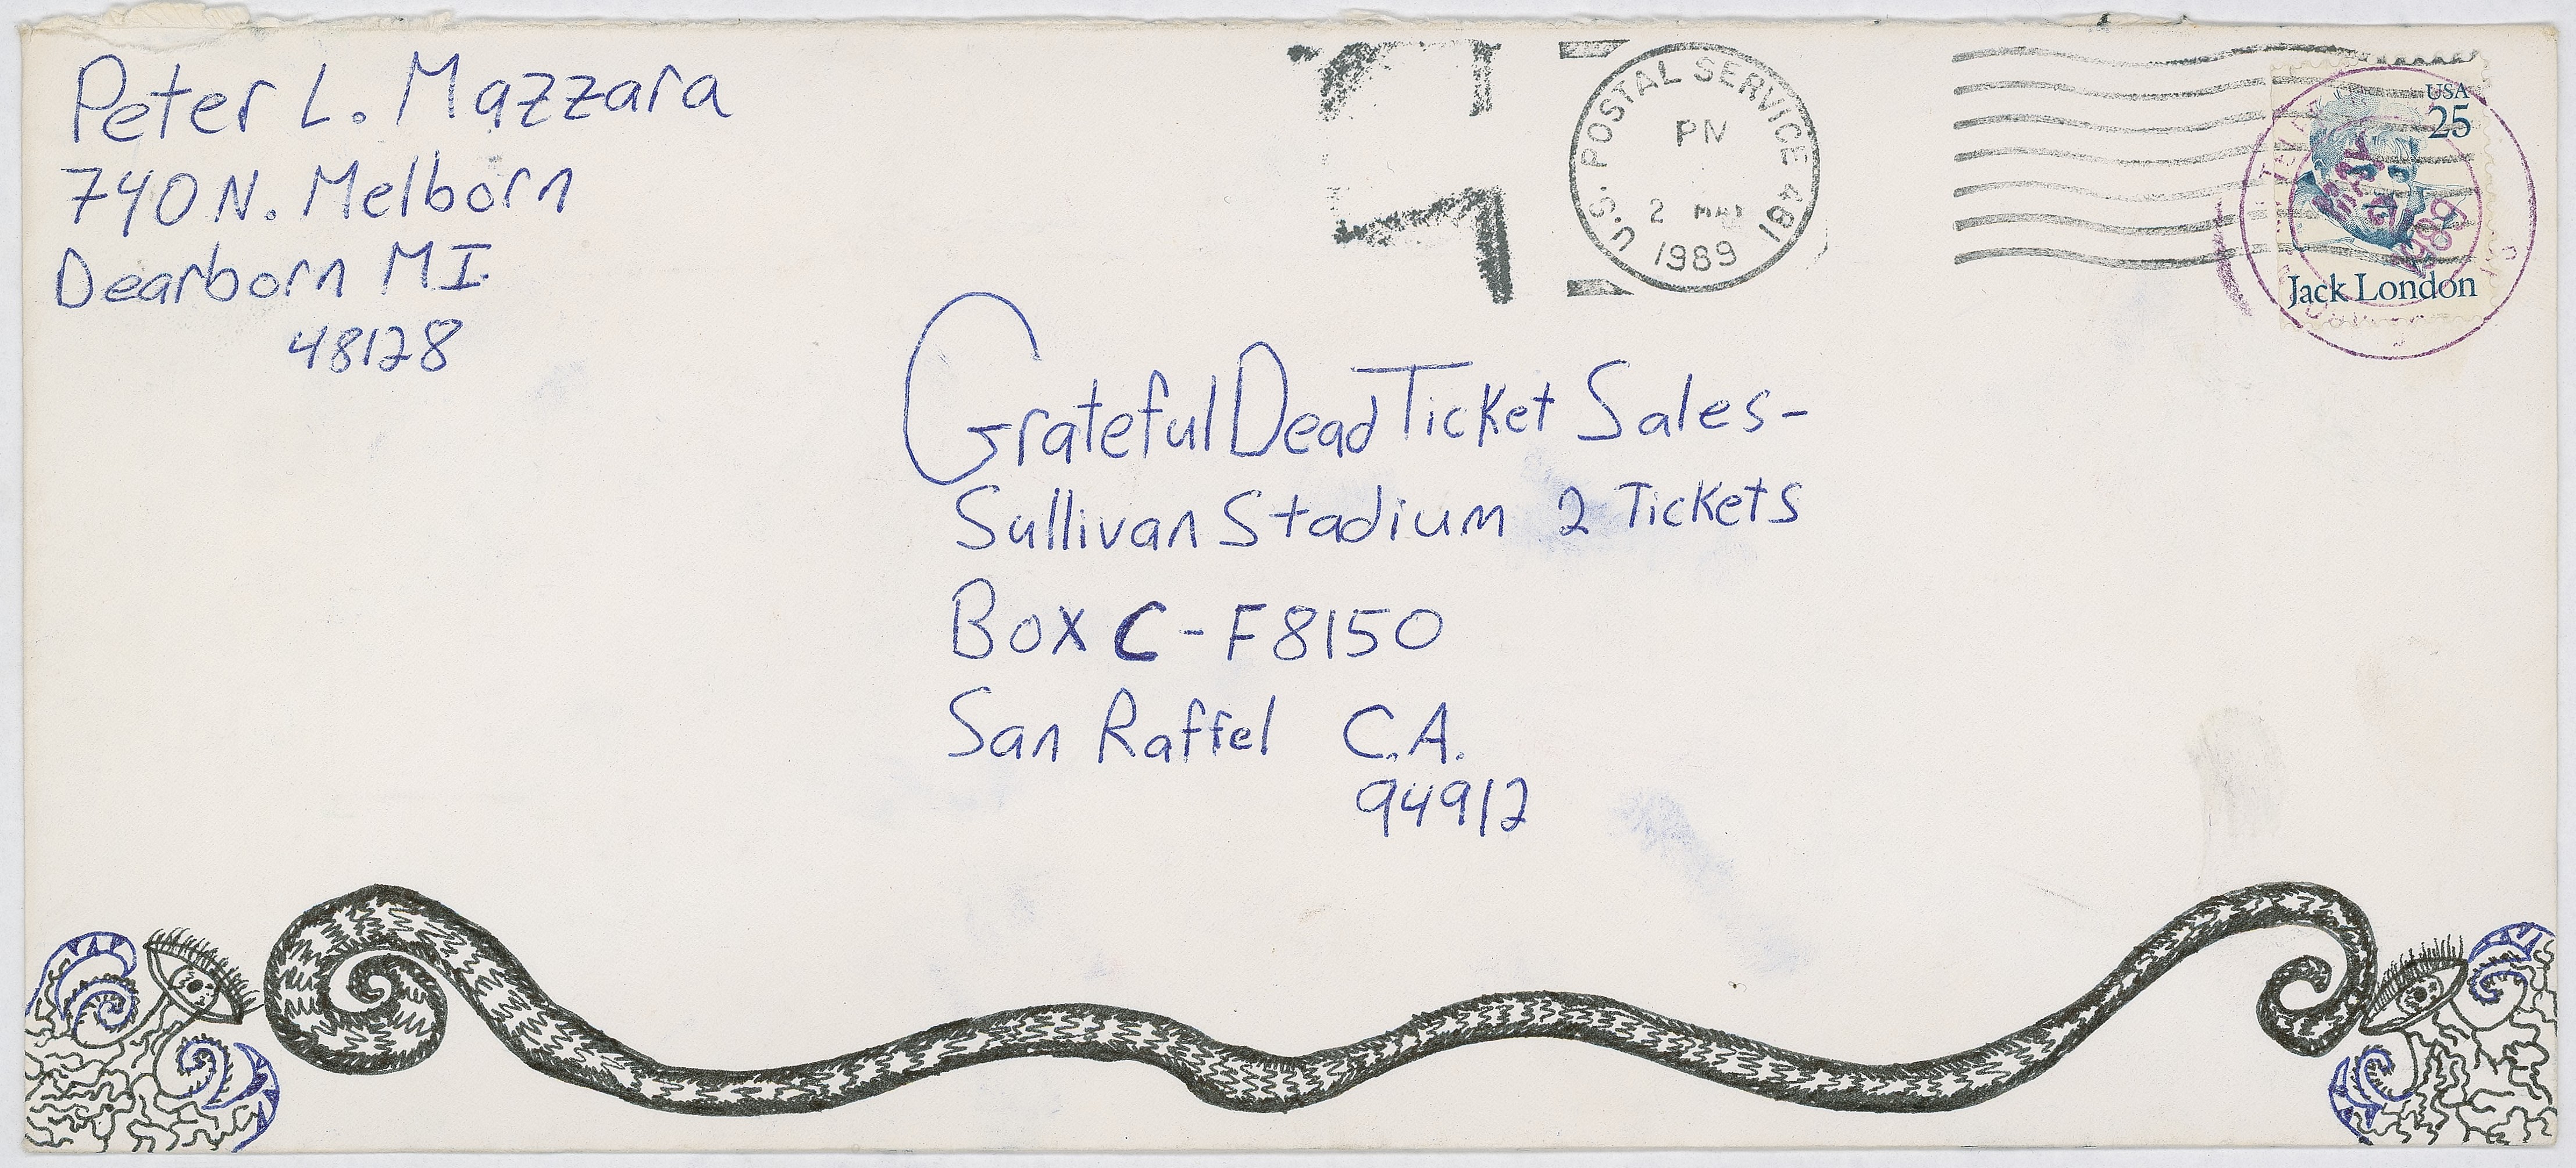 Peter L. Mazzara
740 N. Melborn
Dearborn MI.
48128
U.S. POSTAL SERVICE 481
PM
2 MAY
1989
USA
25
MAY
1989
Jack London
Grateful Dead Ticket Sales-
Sullivan Stadium 2 Tickets
Box C-F8150
San Raffel C.A.
94912